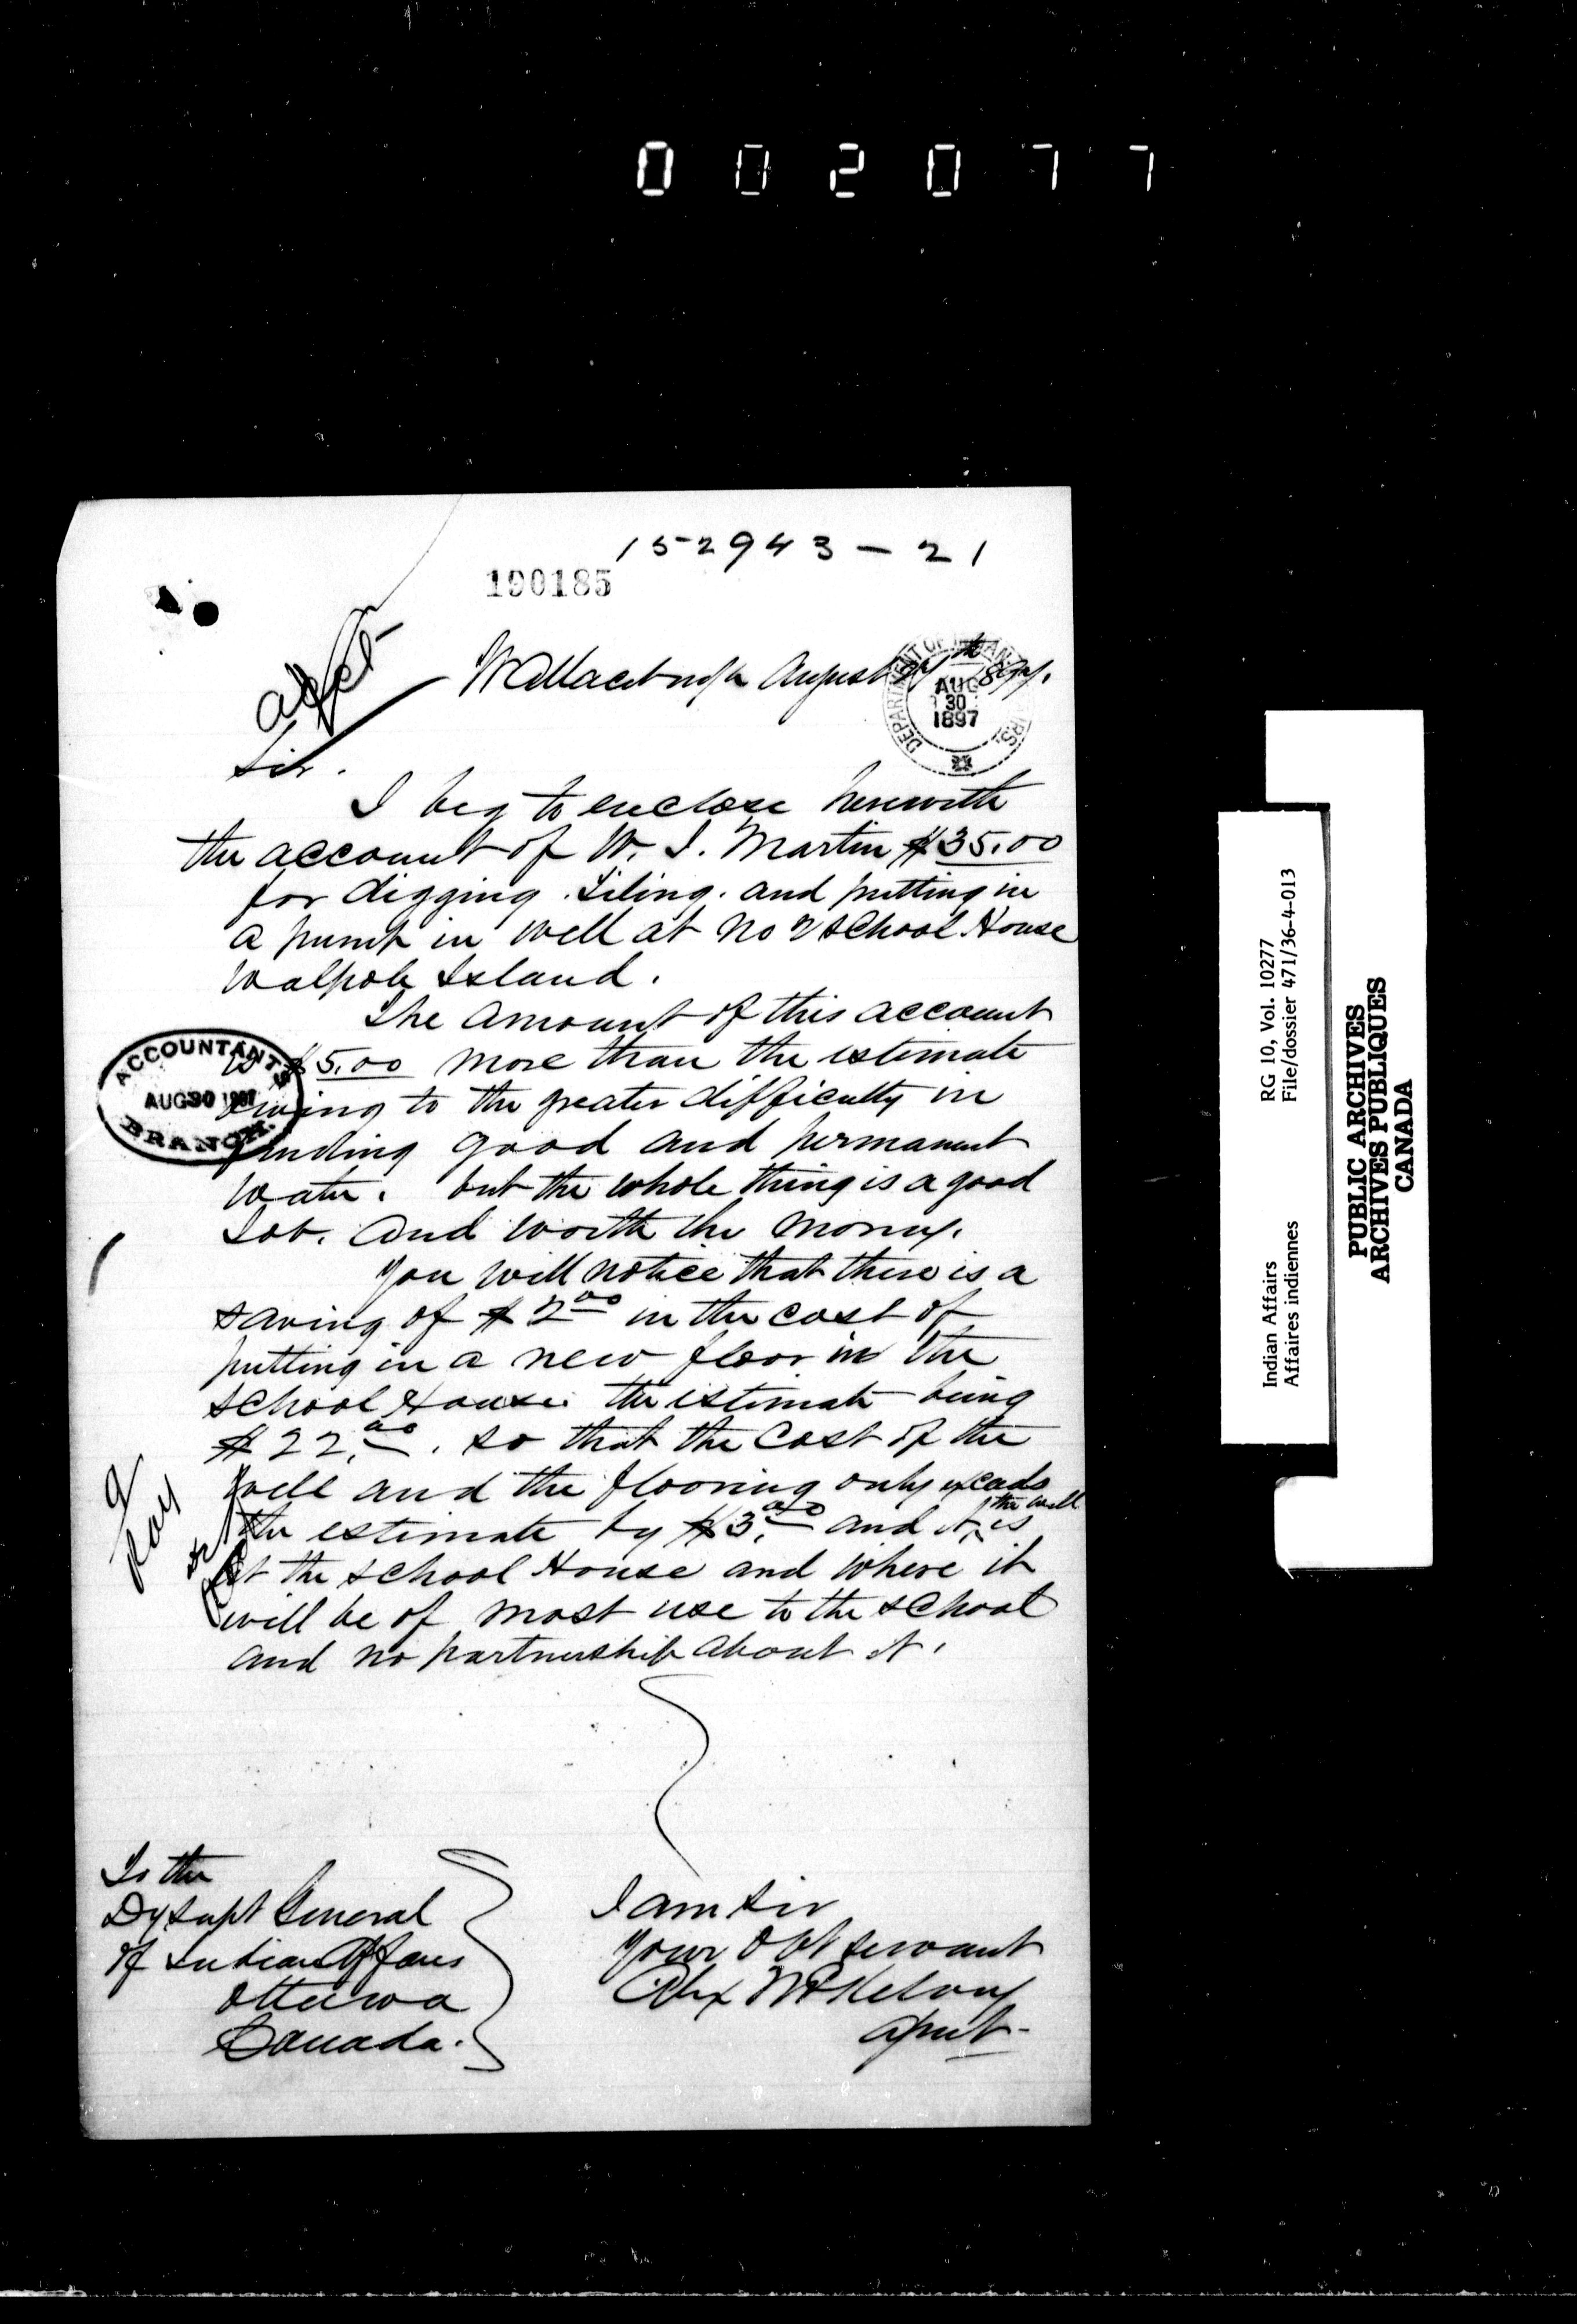 002077
152943-21
190185
Wallaceburgh August 27th 1897.
DEPARTMENT OF INDIAN AFFAIRS.
AUG 30 1897
Sir.
I beg to enclose herewith
the account of W. J. Martin $35.00
for digging. Tiling. and putting in
a pump in well at No 2 School House
Walpole Island.
The amount of this account
is $5.00 more than the estimate
owing to the greater difficulty in
finding good and permanent
water. but the whole thing is a good
Job. and worth the money.
You will notice that there is a
saving of $2.00 in the cost of
putting in a new floor in the
School House. the estimate being
$22.00. so that the cost of the
well and the flooring only exceeds
the estimate by $3.00 and it, the well is
at the school House and where it
will be of most use to the school
and no partnership about it.
ACCOUNTANT'S
AUG 30 1897
BRANCH.
I am Sir
Your Obt servant
Alex McKelvey
Agent
To the
Dy Supt General
of Indian Affairs
Ottawa
Canada.
Indian Affairs RG 10, Vol. 10277
Affaires indiennes File/dossier 471/36-4-013
PUBLIC ARCHIVES
ARCHIVES PUBLIQUES
CANADA